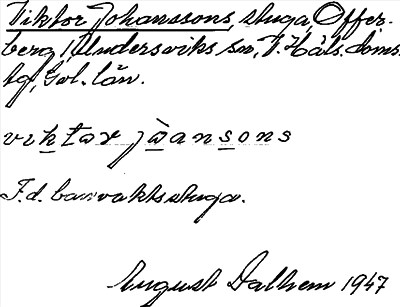 Viktor Johanssons, stuga, Offer-
berg, Undersviks sn, V. Häls. doms.
tg, Gvl. län.
viktar jòansons
F.d. banvaktsstuga.
August Dalhem 1947